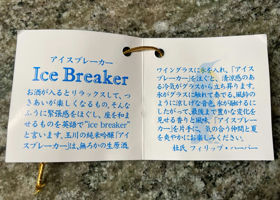 アイスブレーカー
Ice Breaker
お酒が入るとリラックスして、つ
きあいが楽しくなるもの。そんな
ふうに緊張感をほぐし、座を和ま
せるものを英語で"ice breaker"
と言います。玉川の純米吟醸「アイ
スブレーカー」は、無ろかの生原酒
ワイングラスに氷を入れ、「アイス
ブレーカー」を注ぐと、清涼感のあ
る冷気がグラスから立ち昇ります。
氷がグラスに触れて奏でる、風鈴の
ように涼しげな音色。氷が融けるに
したがって、最後まで豊かな変化を
見せる香りと風味。「アイスブレーカ
ー」を片手に、気の合う仲間と夏
を爽やかにお楽しみください。
杜氏 フィリップ・ハーパー